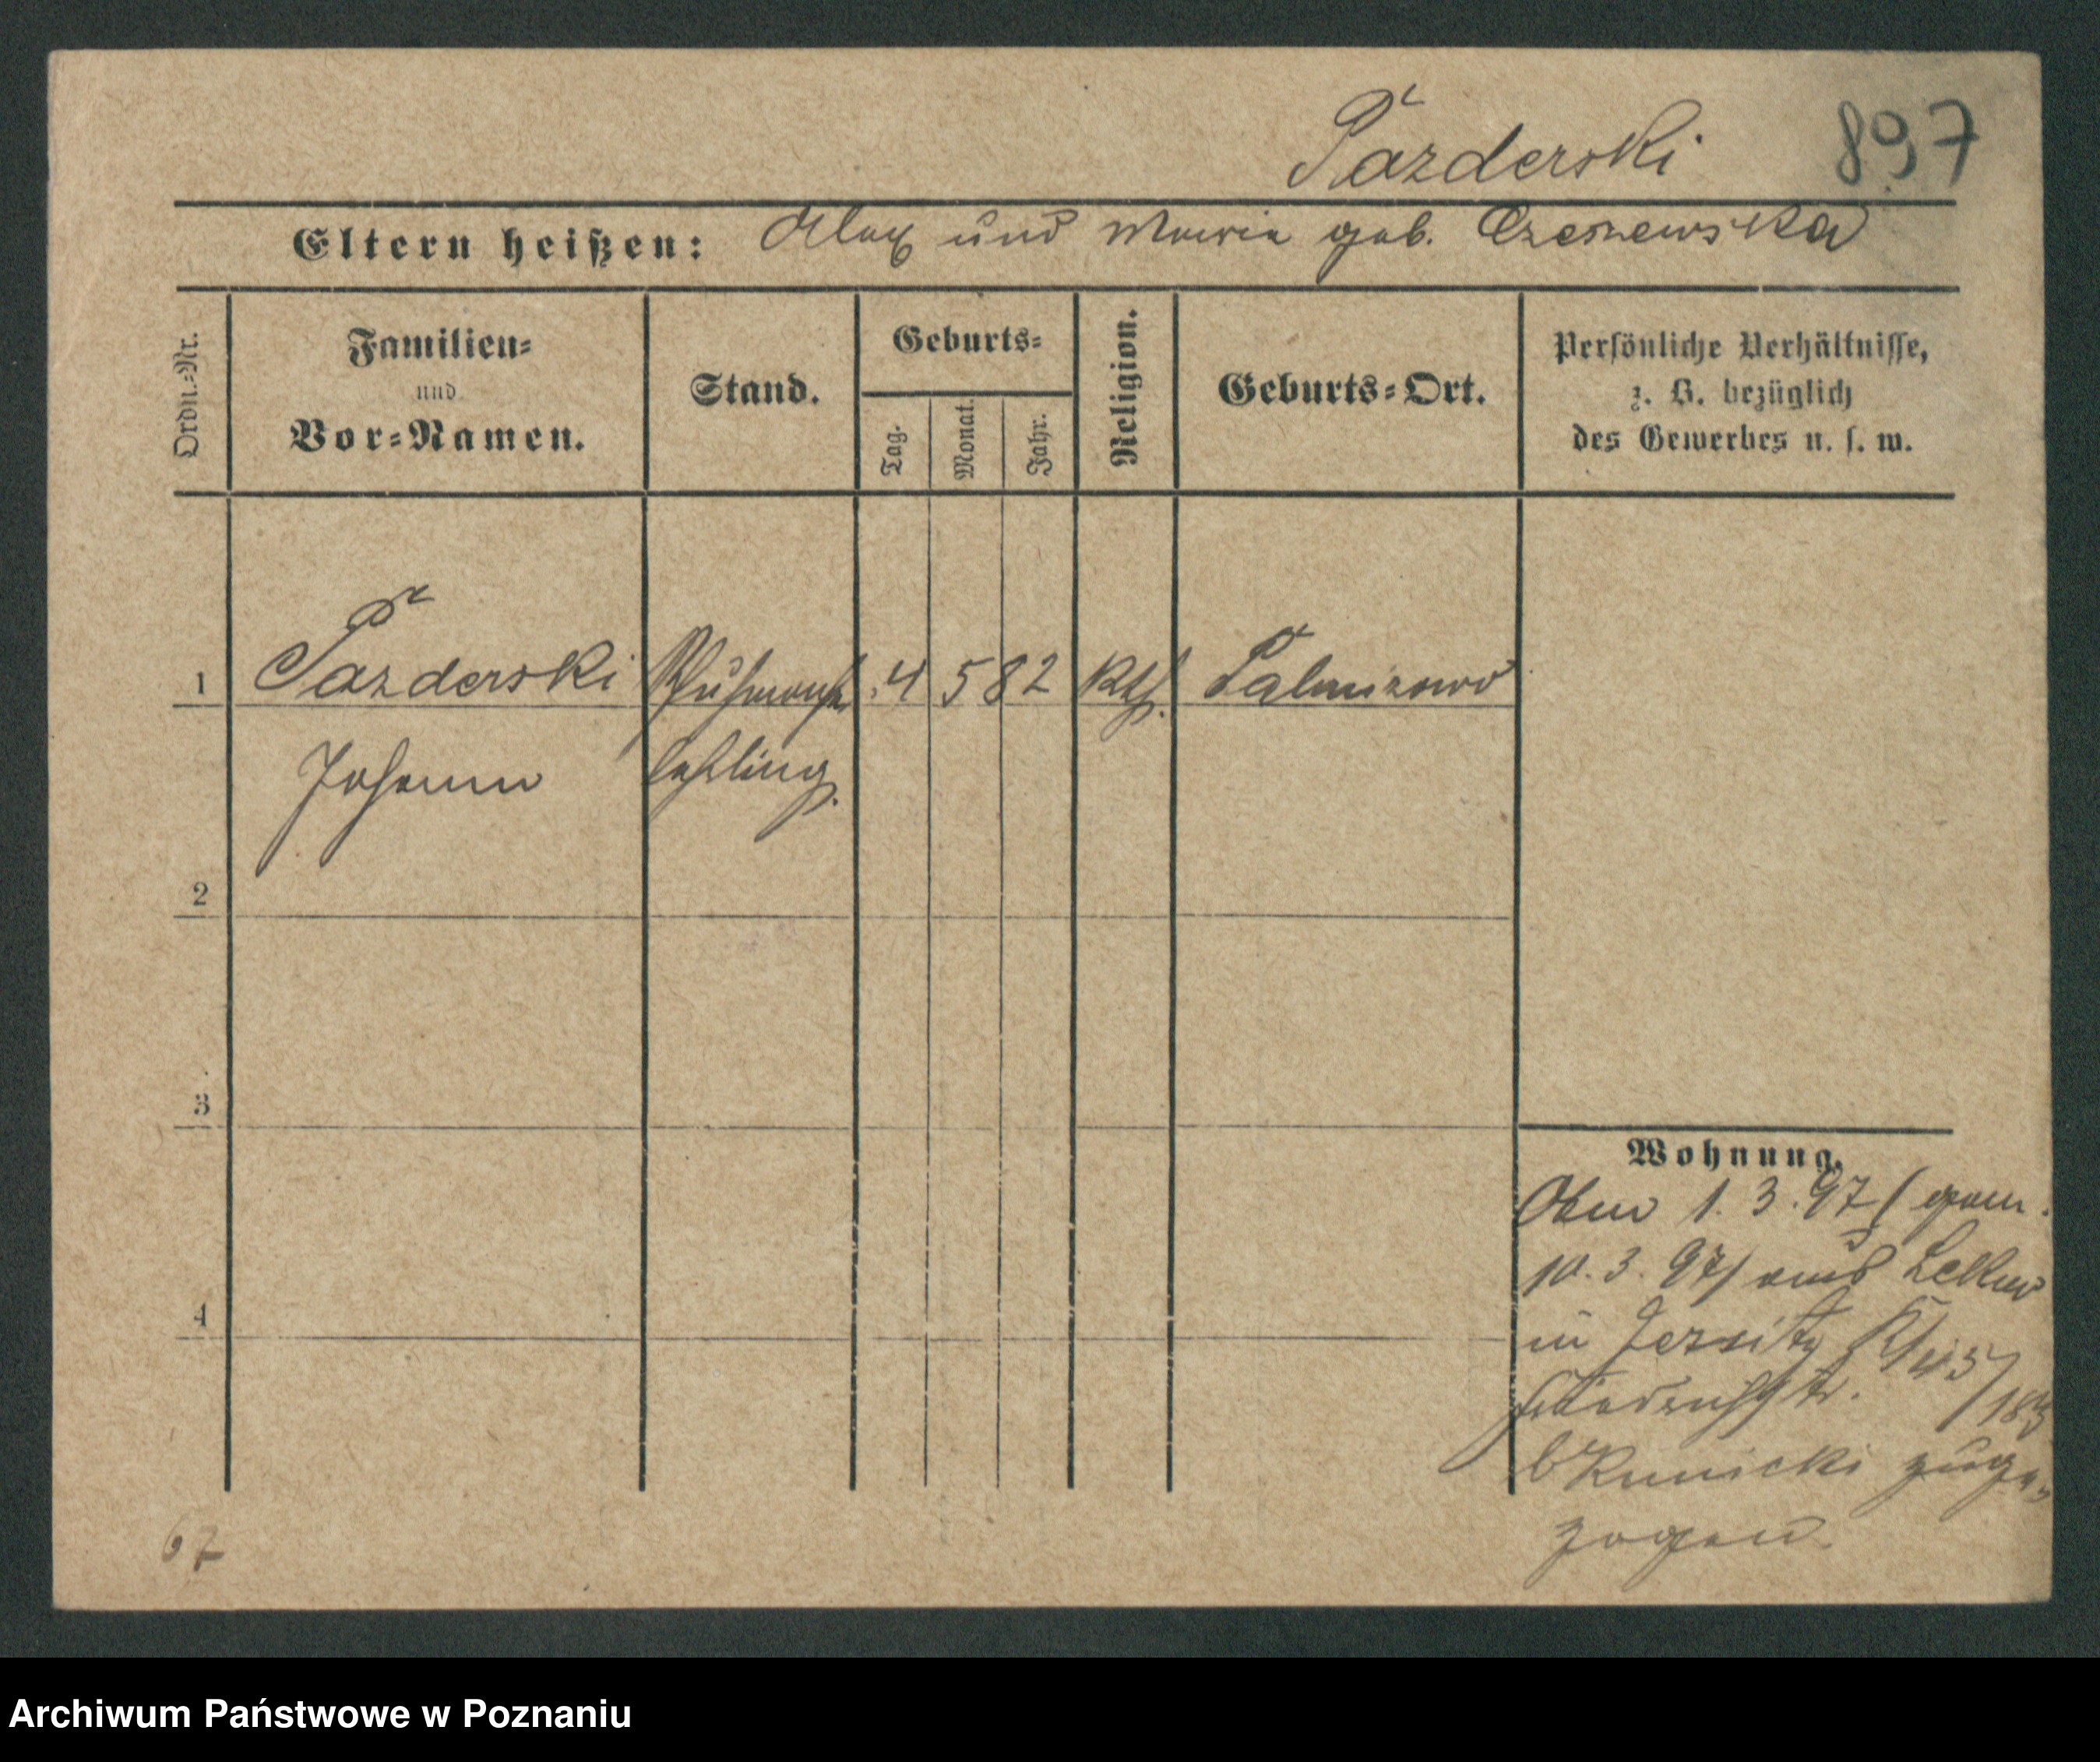 Pazderski 897
Eltern heißen: Alex und Maria geb. Czesnewska
Ordn.=Nr.
Familien=
und
Vor=Namen.
Stand.
Geburts=
Tag.
Monat.
Jahr.
Religion.
Geburts=Ort.
Persönliche Verhältnisse,
z. B. bezüglich
des Gewerbes u. s. w.
1 Pazderski Schuhmacher 4 5 82 kth. Palmizowo
Johann lehrling.
2
3
4
Wohnung.
1.3.97 (gem.
10.3.97) aus
in Jersitz
b Kunicki zuge=
zogen.
67
Archiwum Państwowe w Poznaniu